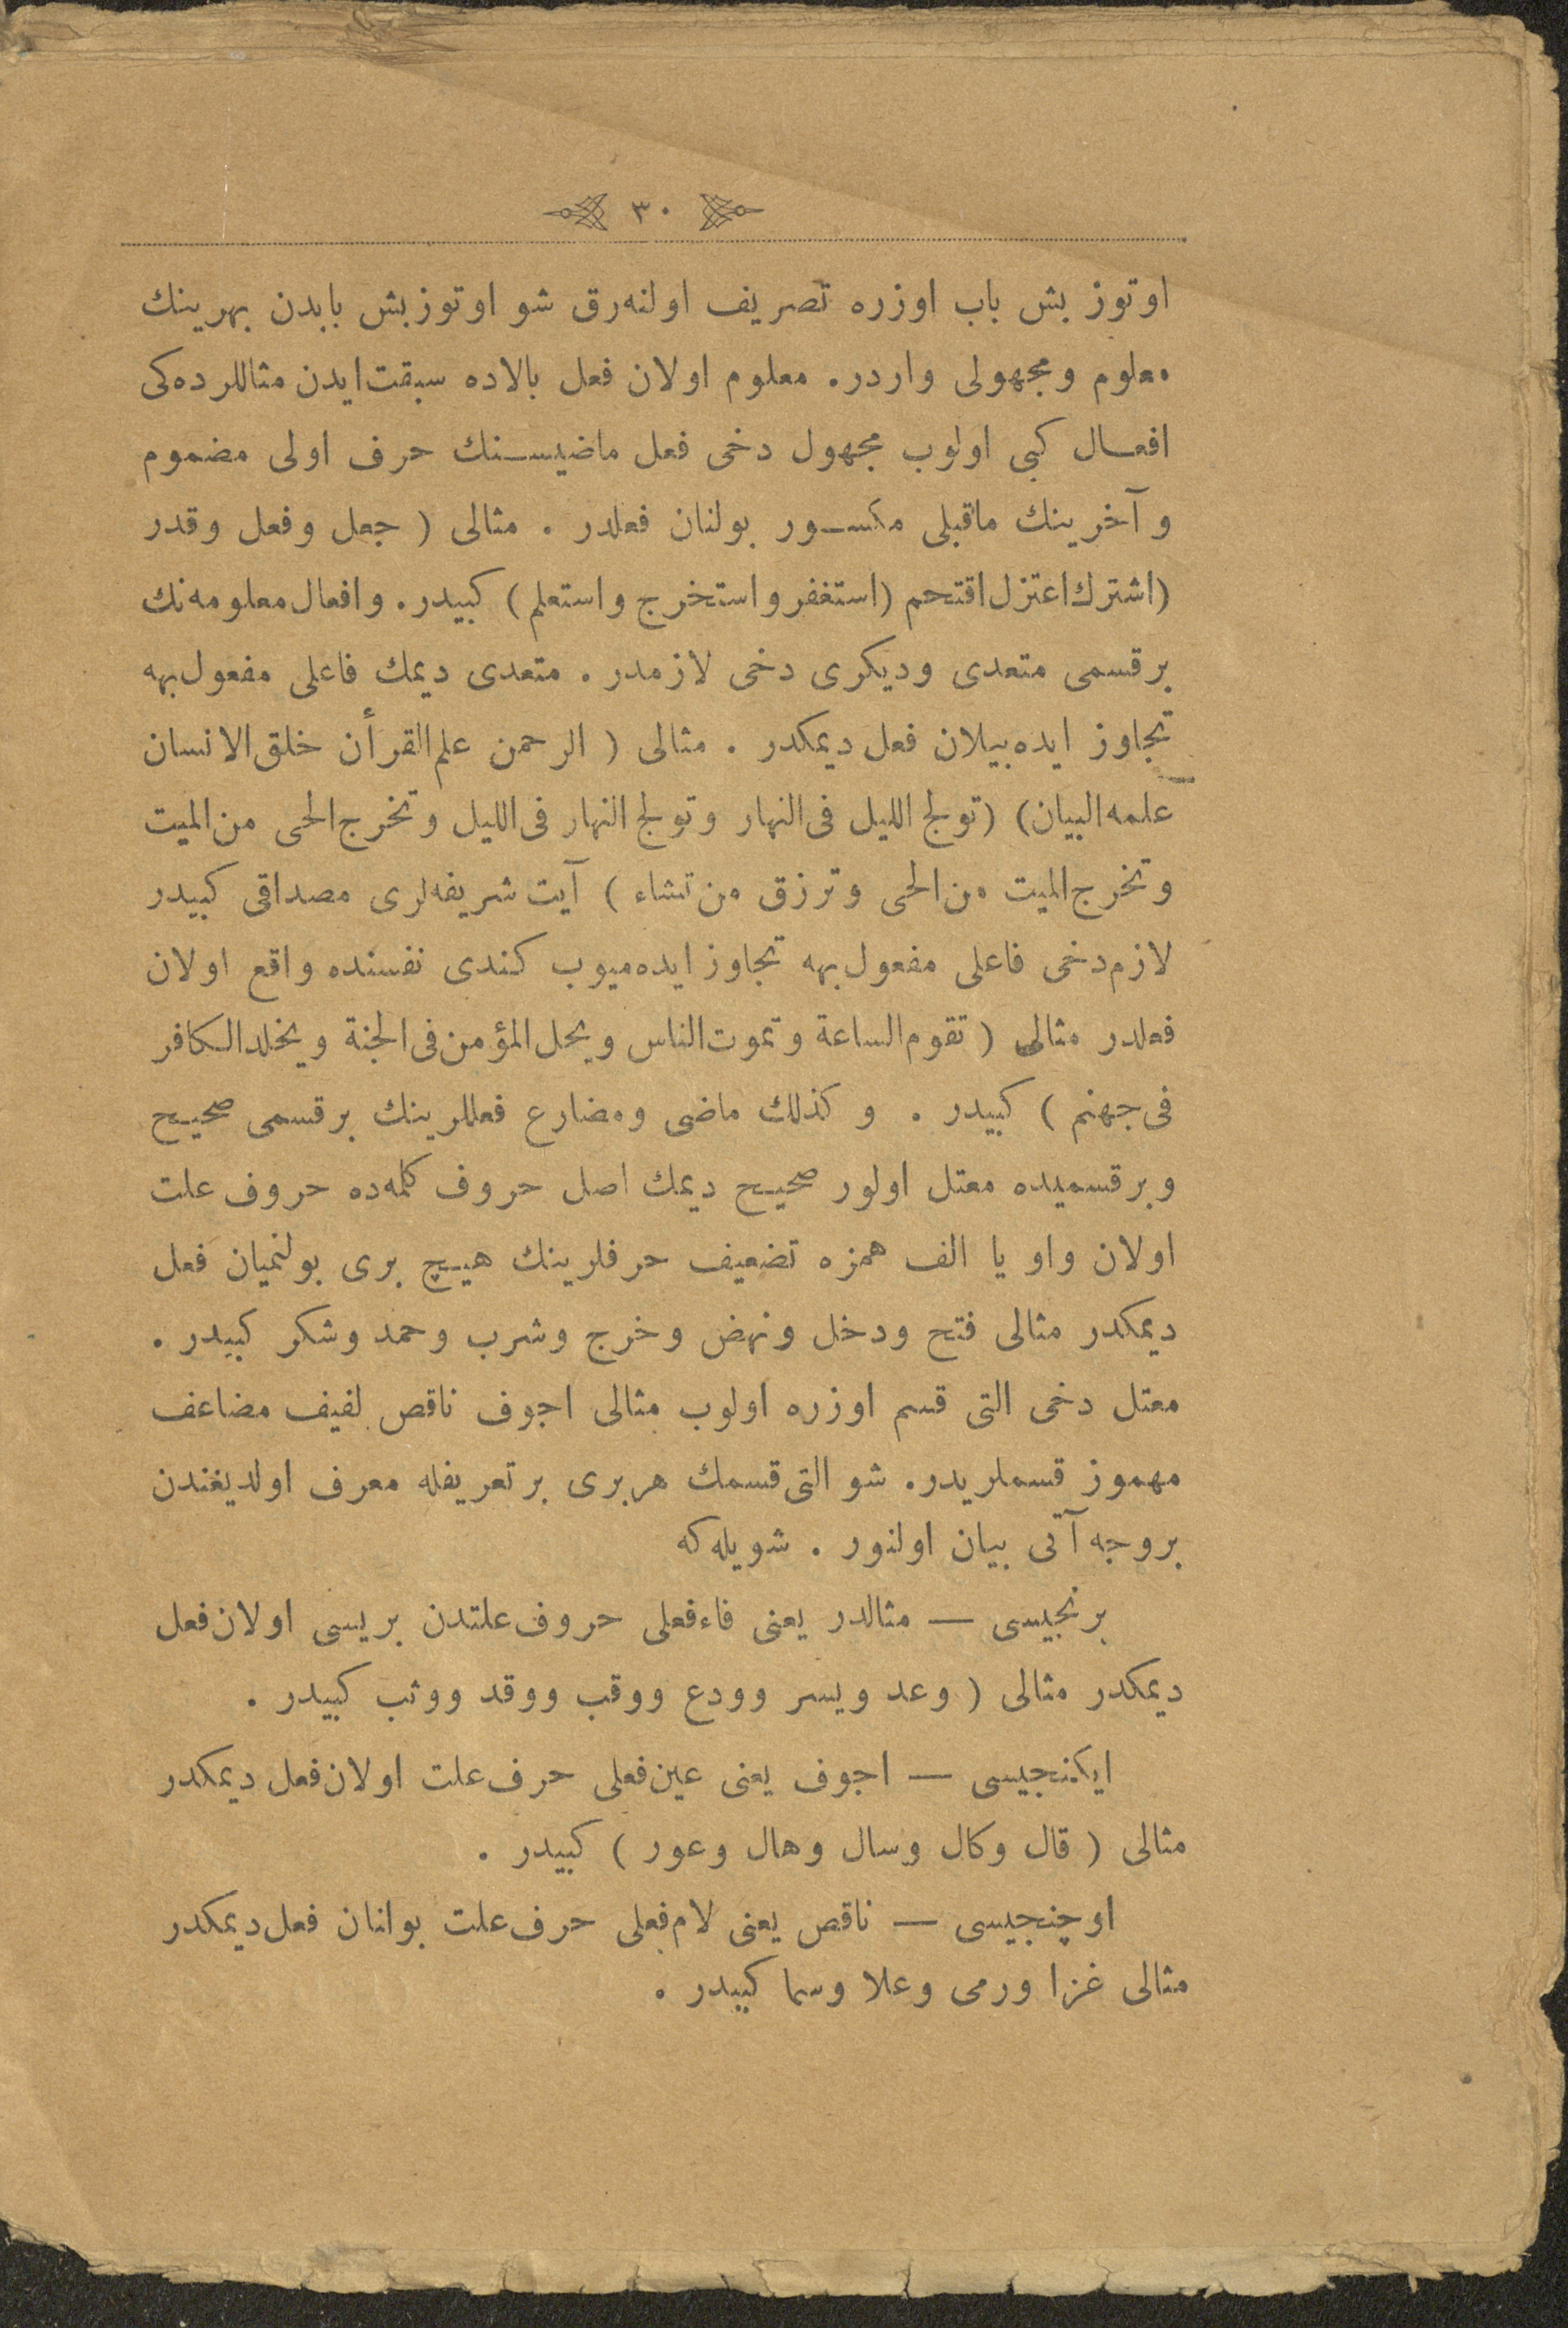 ٣٠
اوتوز بش باب اوزره تصريف اولنه‌رق شو اوتوز بش بابدن بهرينك
معلوم ومجهولى واردر. معلوم اولان فعل بالاده سبقت ايدن مثاللرده‌كى
افعال كبى اولوب مجهول دخى فعل ماضيسنك حرف اولى مضموم
وآخرينك ماقبلى مكسور بولنان فعلدر . مثالى ( جعل وفعل وقدر
(اشترك اعتزل اقتحم (استغفر واستخرج واستعلم) كبيدر. وافعال معلومه‌نك
برقسمى متعدى وديكرى دخى لازمدر . متعدى ديمك فاعلى مفعول بهه
تجاوز ايده‌بيلان فعل ديمكدر . مثالى ( الرحمن علم القرأن خلق الانسان
علمه البيان) (تولج الليل فى النهار وتولج النهار فى الليل وتخرج الحى من الميت
وتخرج الميت من الحى وترزق من تشاء ) آيت شريفه‌لرى مصداقى كبيدر
لازم دخى فاعلى مفعول بهه تجاوز ايده‌ميوب كندى نفسنده واقع اولان
فعلدر مثالى ( تقوم الساعة وتموت الناس ويحل المؤمن فى الجنة ويخلد الكافر
فى جهنم ) كبيدر . وكذلك ماضى ومضارع فعللرينك برقسمى صحيح
وبرقسميده معتل اولور صحيح ديمك اصل حروف كلمه‌ده حروف علت
اولان واو يا الف همزه تضعيف حرفلرينك هيچ برى بولنميان فعل
ديمكدر مثالى فتح ودخل ونهض وخرج وشرب وحمد وشكر كبيدر .
معتل دخى التى قسم اوزره اولوب مثالى اجوف ناقص لفيف مضاعف
مهموز قسملريدر. شو التى قسمك هربرى برتعريفله معرف اولديغندن
بروجه آتى بيان اولنور . شويله‌كه
برنجيسى — مثالدر يعنى فاءفعلى حروف علتدن بريسى اولان فعل
ديمكدر مثالى ( وعد ويسر وودع ووقب ووقد ووثب كبيدر .
ايكنجيسى — اجوف يعنى عين فعلى حرف علت اولان فعل ديمكدر
مثالى ( قال وكال وسال وهال وعور ) كبيدر .
اوچنجيسى — ناقص يعنى لام فعلى حرف علت بولنان فعل ديمكدر
مثالى غزا ورمى وعلا وسما كبيدر .